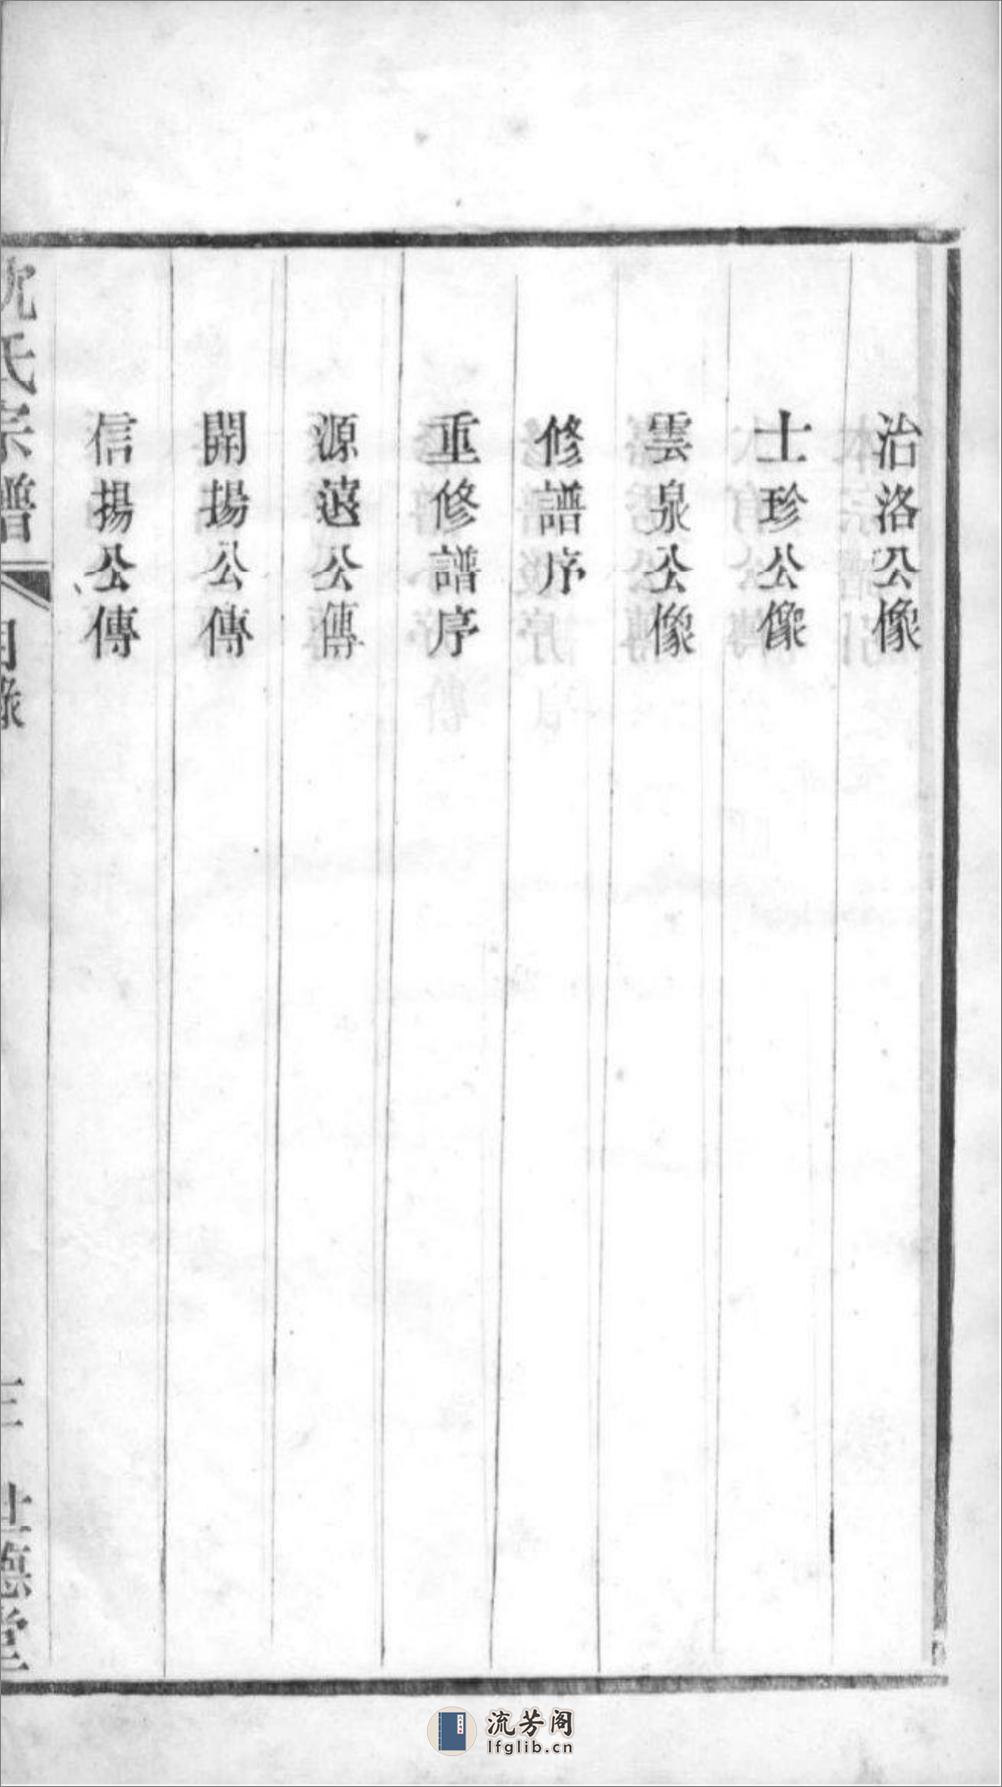 治洛公像
士珍公像
雲泉公像
修譜序
重修譜序
源遠公傳
開揚公傳
信揚公傳
沈氏宗譜
目錄
三
世德堂
流芳阁
lfglib.cn